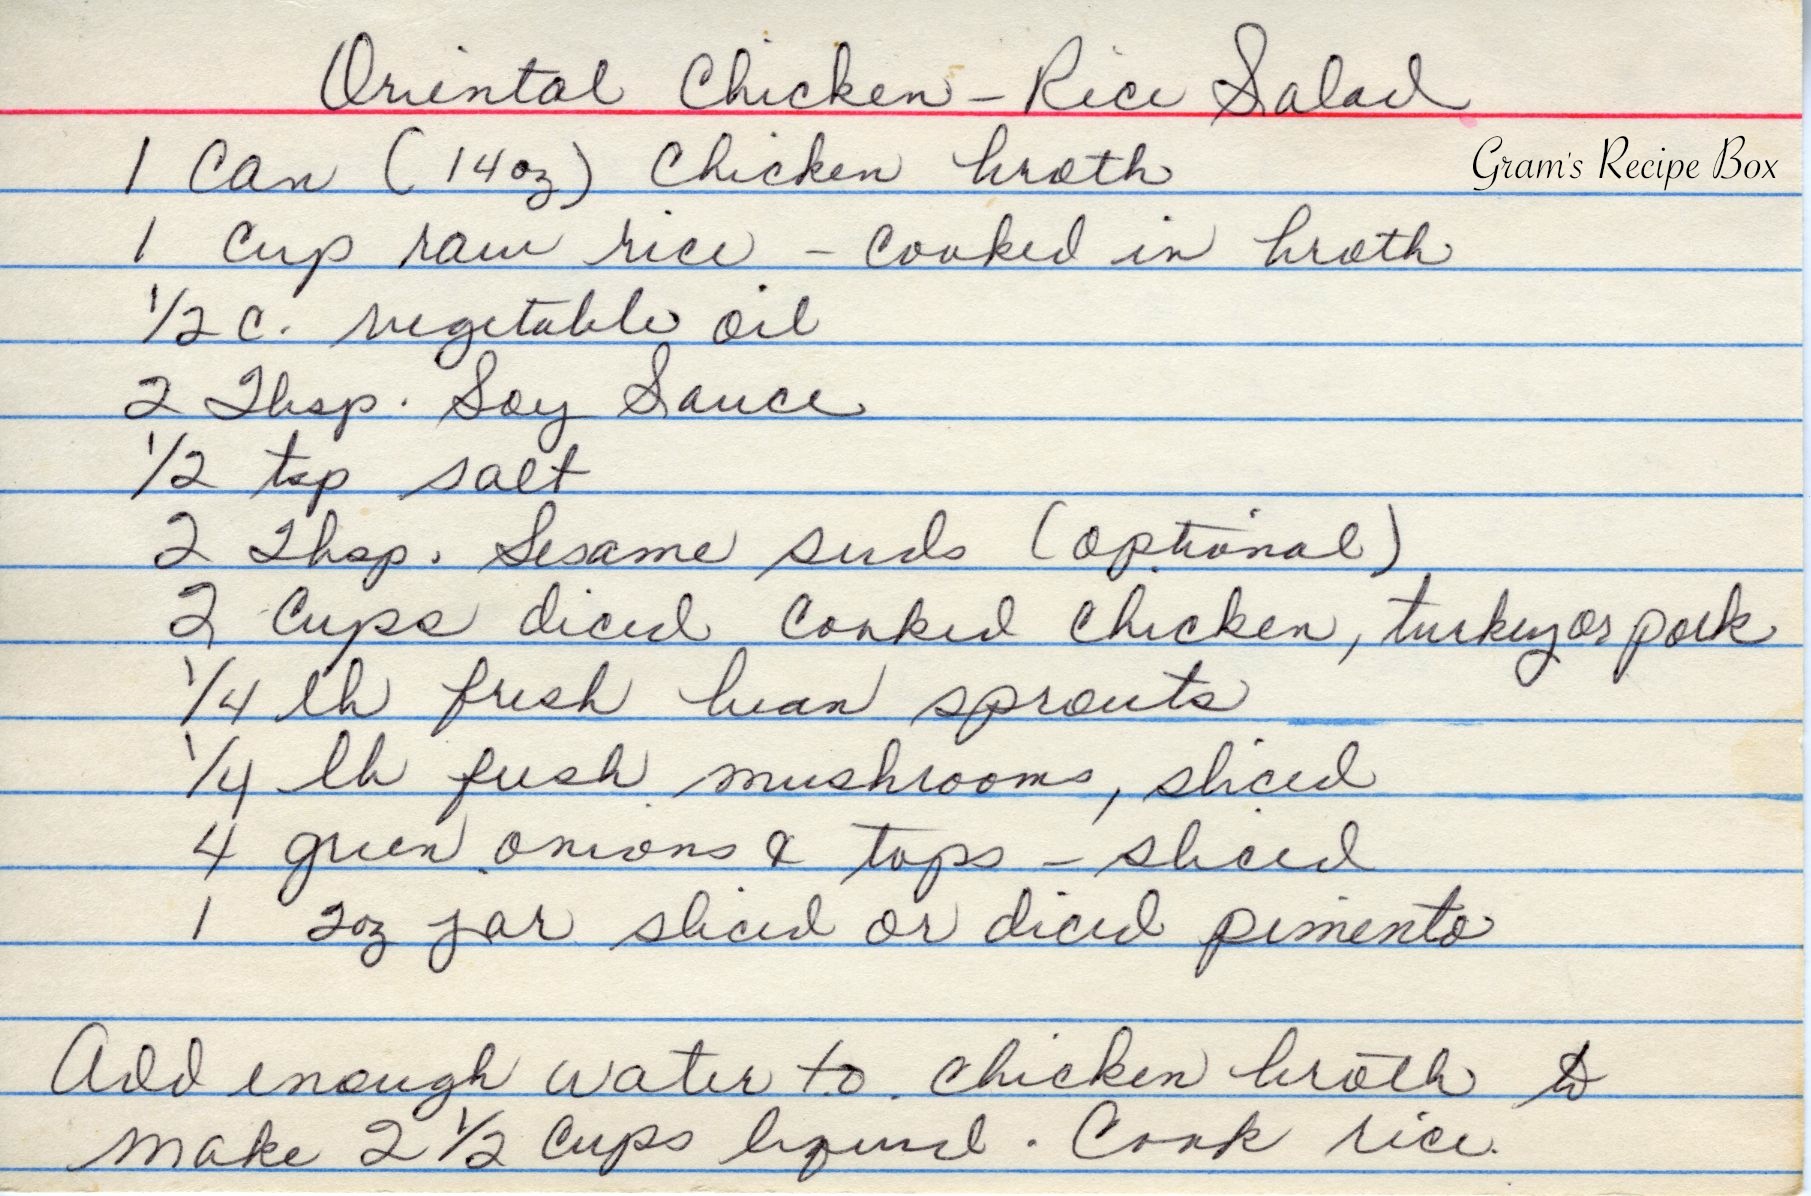 Oriental Chicken - Rice Salad
Gram's Recipe Box
1 Can (14 oz) Chicken broth
1 Cup raw rice - cooked in broth
1/2 c. vegetable oil
2 Tbsp. Soy Sauce
1/2 tsp salt
2 Tbsp. Sesame seeds (optional)
2 Cups diced cooked chicken, turkey or pork
1/4 lb fresh bean sprouts
1/4 lb fresh mushrooms, sliced
4 green onions & tops - sliced
1 2oz jar sliced or diced pimento
Add enough water to chicken broth to
make 2 1/2 Cups liquid. Cook rice.